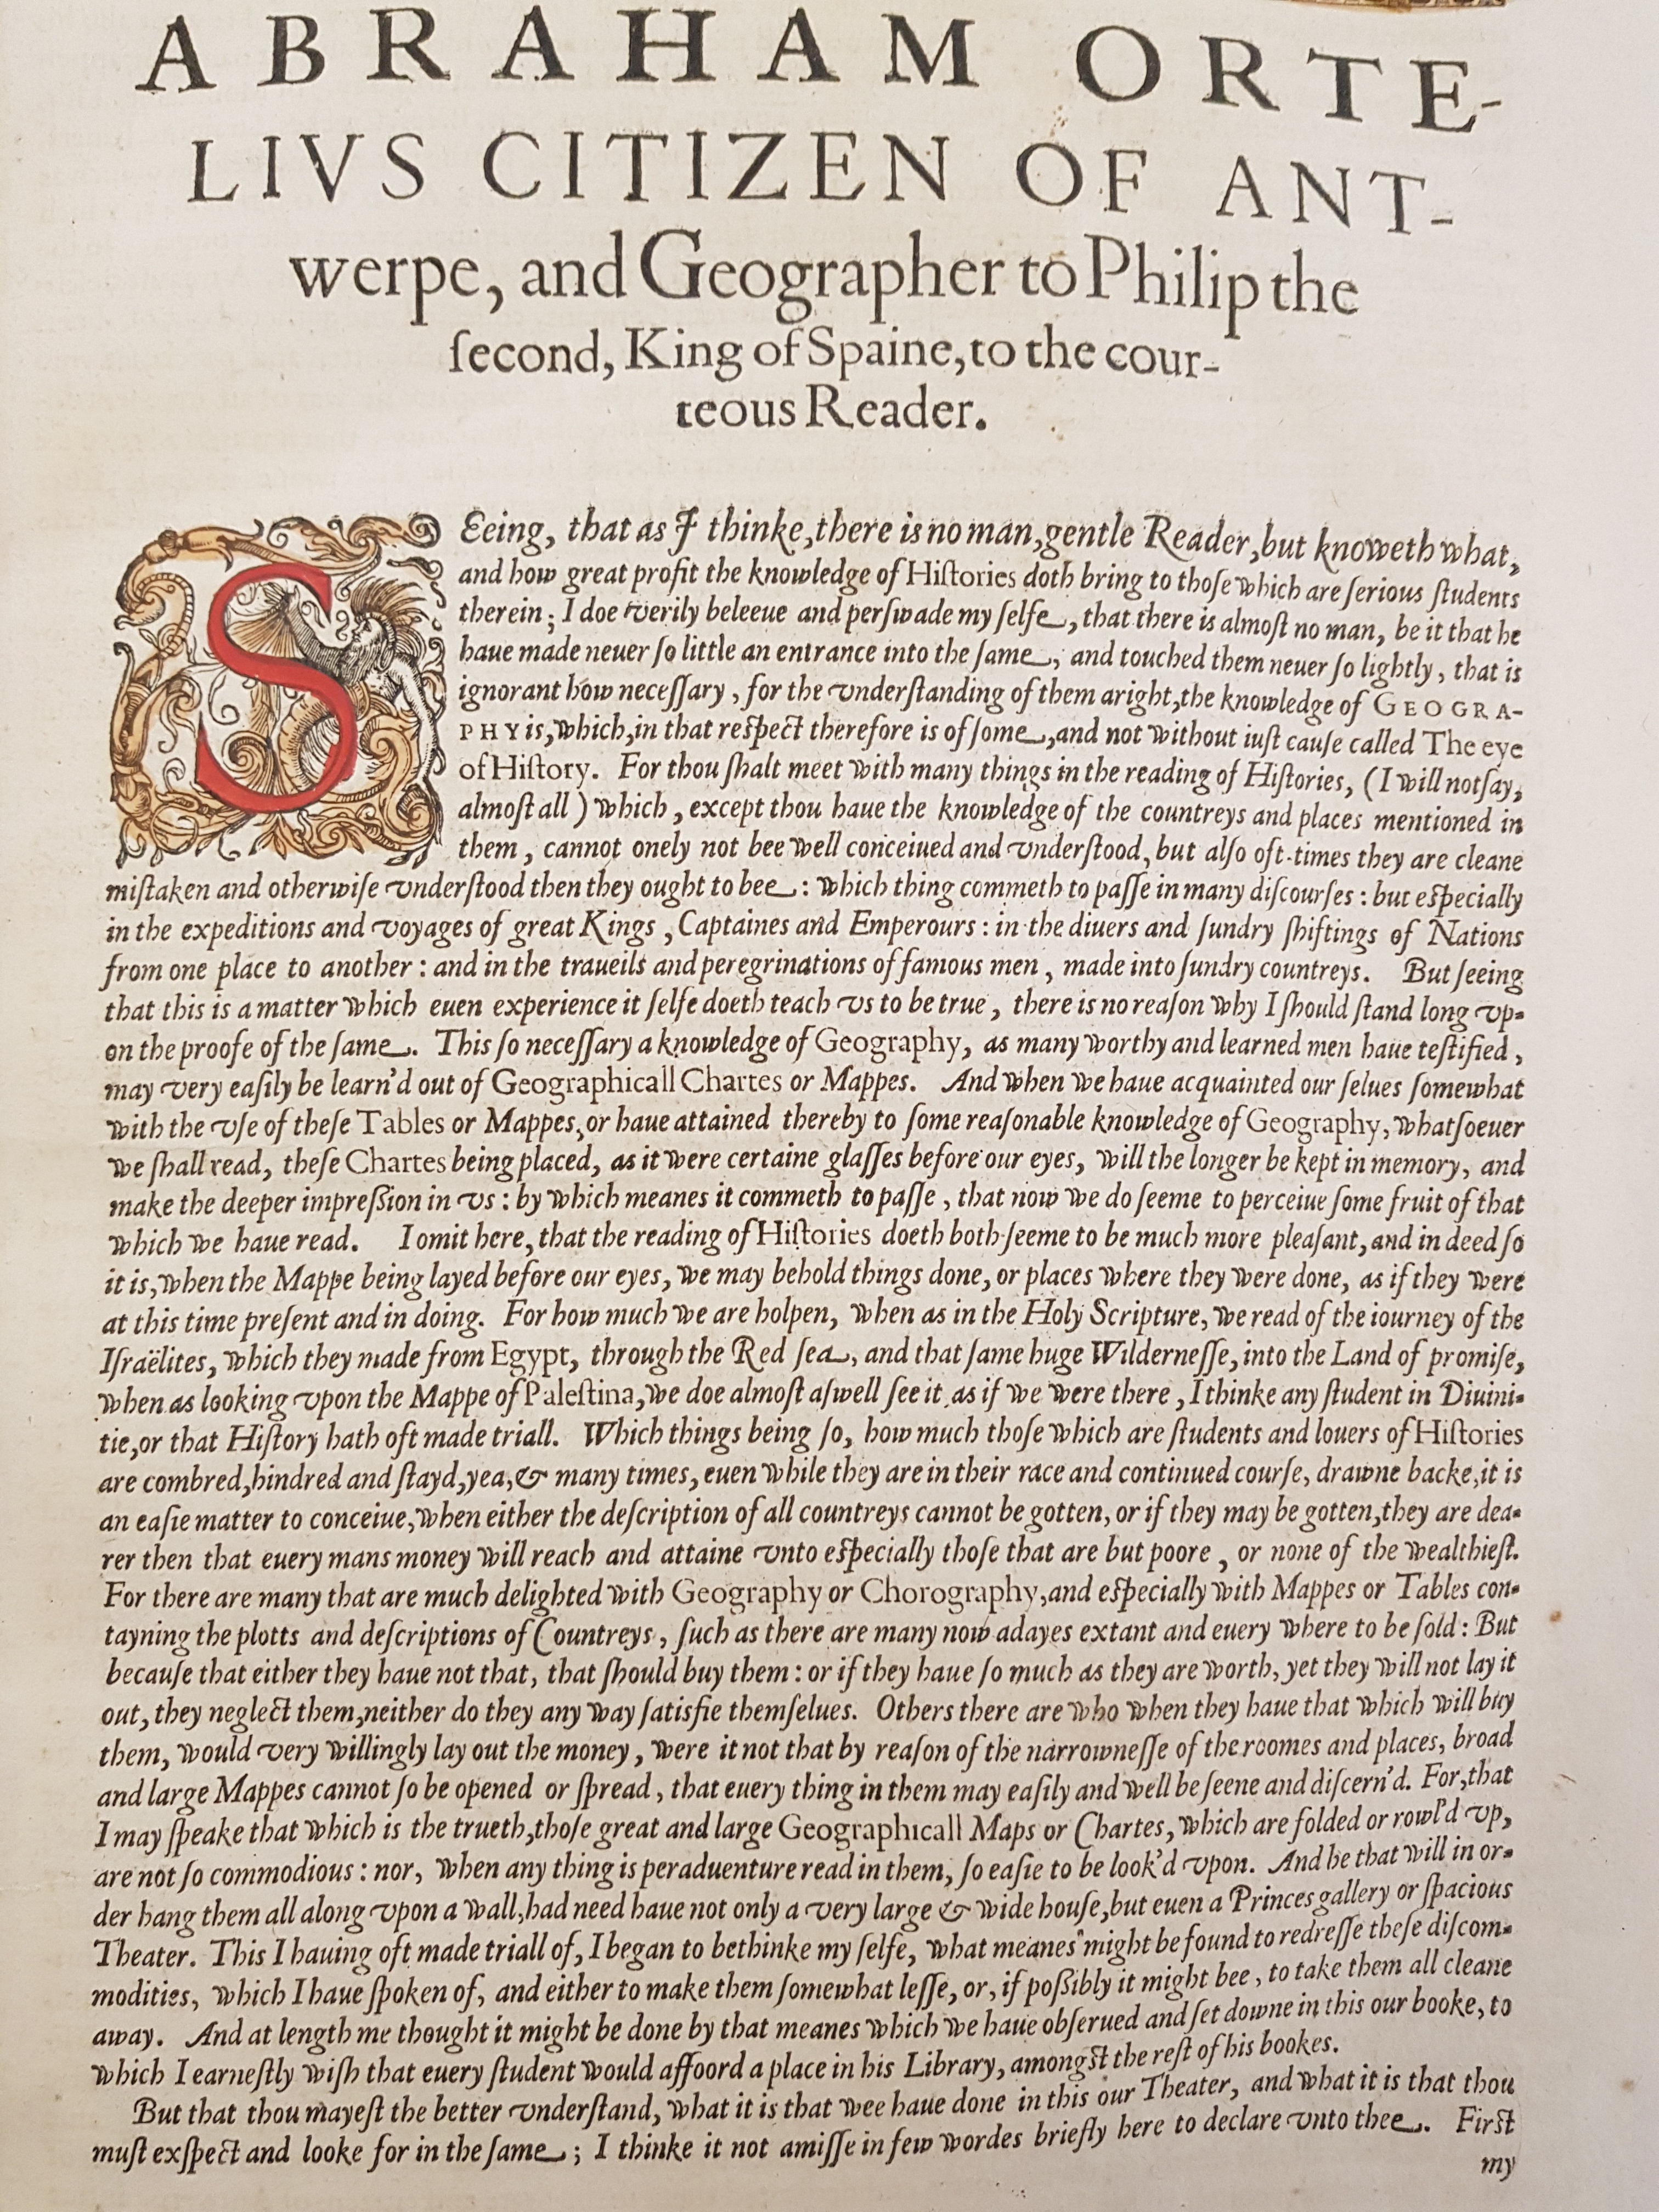 ABRAHAM ORTE-
LIVS CITIZEN OF ANT-
werpe, and Geographer to Philip the
ſecond, King of Spaine, to the cour-
teous Reader.
SEeing, that as I thinke, there is no man, gentle Reader, but knoweth what,
and how great profit the knowledge of Hiſtories doth bring to thoſe which are ſerious ſtudents
therein; I doe verily beleeue and perſwade my ſelfe, that there is almoſt no man, be it that he
haue made neuer ſo little an entrance into the ſame, and touched them neuer ſo lightly, that is
ignorant how neceſſary, for the vnderſtanding of them aright, the knowledge of GEOGRA-
PHY is, which, in that reſpect therefore is of ſome, and not without iuſt cauſe called The eye
of Hiſtory. For thou ſhalt meet with many things in the reading of Hiſtories, (I will not ſay,
almoſt all) which, except thou haue the knowledge of the countreys and places mentioned in
them, cannot onely not bee well conceiued and vnderſtood, but alſo oft-times they are cleane
miſtaken and otherwiſe vnderſtood then they ought to bee: which thing commeth to paſſe in many diſcourſes: but eſpecially
in the expeditions and voyages of great Kings, Captaines and Emperours: in the diuers and ſundry ſhiftings of Nations
from one place to another: and in the traueils and peregrinations of famous men, made into ſundry countreys. But ſeeing
that this is a matter which euen experience it ſelfe doeth teach vs to be true, there is no reaſon why I ſhould ſtand long vp-
on the proofe of the ſame. This ſo neceſſary a knowledge of Geography, as many worthy and learned men haue teſtified,
may very eaſily be learn'd out of Geographicall Chartes or Mappes. And when we haue acquainted our ſelues ſomewhat
with the vſe of theſe Tables or Mappes, or haue attained thereby to ſome reaſonable knowledge of Geography, whatſoeuer
we ſhall read, theſe Chartes being placed, as it were certaine glaſſes before our eyes, will the longer be kept in memory, and
make the deeper impreſſion in vs: by which meanes it commeth to paſſe, that now we do ſeeme to perceiue ſome fruit of that
which we haue read. I omit here, that the reading of Hiſtories doeth both ſeeme to be much more pleaſant, and in deed ſo
it is, when the Mappe being layed before our eyes, we may behold things done, or places where they were done, as if they were
at this time preſent and in doing. For how much we are holpen, when as in the Holy Scripture, we read of the iourney of the
Iſraëlites, which they made from Egypt, through the Red ſea, and that ſame huge Wilderneſſe, into the Land of promiſe,
when as looking vpon the Mappe of Paleſtina, we doe almoſt aſwell ſee it as if we were there, I thinke any ſtudent in Diuini-
tie, or that Hiſtory hath oft made triall. Which things being ſo, how much thoſe which are ſtudents and louers of Hiſtories
are combred, hindred and ſtayd, yea, & many times, euen while they are in their race and continued courſe, drawne backe, it is
an eaſie matter to conceiue, when either the deſcription of all countreys cannot be gotten, or if they may be gotten, they are dea-
rer then that euery mans money will reach and attaine vnto eſpecially thoſe that are but poore, or none of the wealthieſt.
For there are many that are much delighted with Geography or Chorography, and eſpecially with Mappes or Tables con-
tayning the plotts and deſcriptions of Countreys, ſuch as there are many now adayes extant and euery where to be ſold: But
becauſe that either they haue not that, that ſhould buy them: or if they haue ſo much as they are worth, yet they will not lay it
out, they neglect them, neither do they any way ſatisfie themſelues. Others there are who when they haue that which will buy
them, would very willingly lay out the money, were it not that by reaſon of the narrowneſſe of the roomes and places, broad
and large Mappes cannot ſo be opened or ſpread, that euery thing in them may eaſily and well be ſeene and diſcern'd. For, that
I may ſpeake that which is the trueth, thoſe great and large Geographicall Maps or Chartes, which are folded or rowl'd vp,
are not ſo commodious: nor, when any thing is peraduenture read in them, ſo eaſie to be look'd vpon. And he that will in or-
der hang them all along vpon a wall, had need haue not only a very large & wide houſe, but euen a Princes gallery or ſpacious
Theater. This I hauing oft made triall of, I began to bethinke my ſelfe, what meanes might be found to redreſſe theſe diſcom-
modities, which I haue ſpoken of, and either to make them ſomewhat leſſe, or, if poſſibly it might bee, to take them all cleane
away. And at length me thought it might be done by that meanes which we haue obſerued and ſet downe in this our booke, to
which I earneſtly wiſh that euery ſtudent would affoord a place in his Library, amongſt the reſt of his bookes.
But that thou mayeſt the better vnderſtand, what it is that wee haue done in this our Theater, and what it is that thou
muſt exſpect and looke for in the ſame; I thinke it not amiſſe in few wordes briefly here to declare vnto thee. Firſt
my